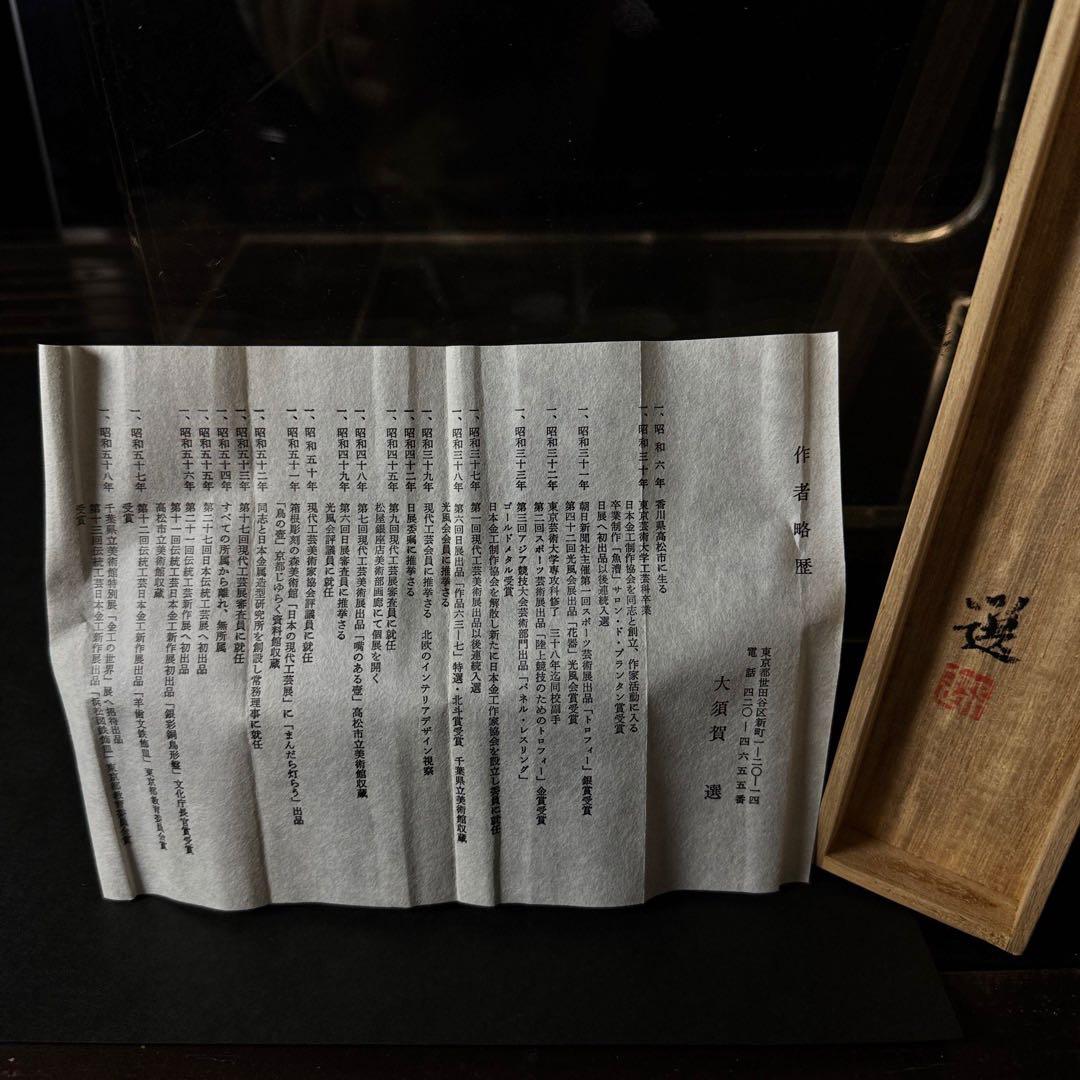 作者略歴
東京都世田谷区新町一ー二〇ー一四
電話 四二〇ー四六五五番
大須賀 選
一、昭和六年 香川県高松市に生る
一、昭和三十年 東京芸術大学工芸科卒業
日本金工制作協会を同志と創立、作家活動に入る
卒業制作「魚漕」サロン・ド・プランタン賞受賞
日展へ初出品以後連続入選
一、昭和三一年 朝日新聞社主催第一回スポーツ芸術展出品「トロフィー」銀賞受賞
第四十二回光風会展出品「花器」光風会賞受賞
一、昭和三二年 東京芸術大学専攻科修了 三十八年迄同校副手
第二回スポーツ芸術展出品「陸上競技のためのトロフィー」金賞受賞
一、昭和三三年 第三回アジア競技大会芸術部門出品「パネル・レスリング」
ゴールドメタル受賞
日本金工制作協会を解散し新たに日本金工作家協会を設立し委員に就任
一、昭和三七年 第一回現代工芸美術展出品以後連続入選
一、昭和三八年 第六回日展出品「作品に三ー七」特選・北斗賞受賞 千葉県立美術館収蔵
光風会会員に推挙さる
一、昭和三九年 現代工芸会員に推挙さる 北欧のインテリアデザイン視察
一、昭和四二年 日展委嘱に推挙さる
一、昭和四五年 第九回現代工芸展審査員に就任
松屋銀座店美術部画廊にて個展を開く
一、昭和四八年 第七回現代工芸美術展出品「嘴のある壺」高松市立美術館収蔵
一、昭和四九年 第六回日展審査員に推挙さる
光風会評議員に就任
一、昭和五十年 現代工芸美術家協会評議員に就任
一、昭和五一年 箱根彫刻の森美術館「日本の現代工芸展」に「まんだら灯らう」出品
「鳥の壺」京都じゆらく資料館収蔵
一、昭和五二年 同志と日本金属造型研究所を創設し常務理事に就任
一、昭和五三年 第十七回現代工芸展審査員に就任
一、昭和五四年 すべての所属から離れ、無所属
一、昭和五五年 第二十七回日本伝統工芸展へ初出品
一、昭和五六年 第二十一回伝統工芸新作展へ初出品
第十一回伝統工芸日本金工新作展初出品「銀彩銅鳥形盤」文化庁長官賞受賞
高松市立美術館収蔵
一、昭和五七年 第十二回伝統工芸日本金工新作展出品「羊歯文鉄飾皿」東京都教育委員会賞
受賞
一、昭和五八年 千葉県立美術館特別展「金工の世界」展へ招待出品
第十三回伝統工芸日本金工新作展出品「浜松図鉄飾皿」東京都教育委員会賞
受賞
選